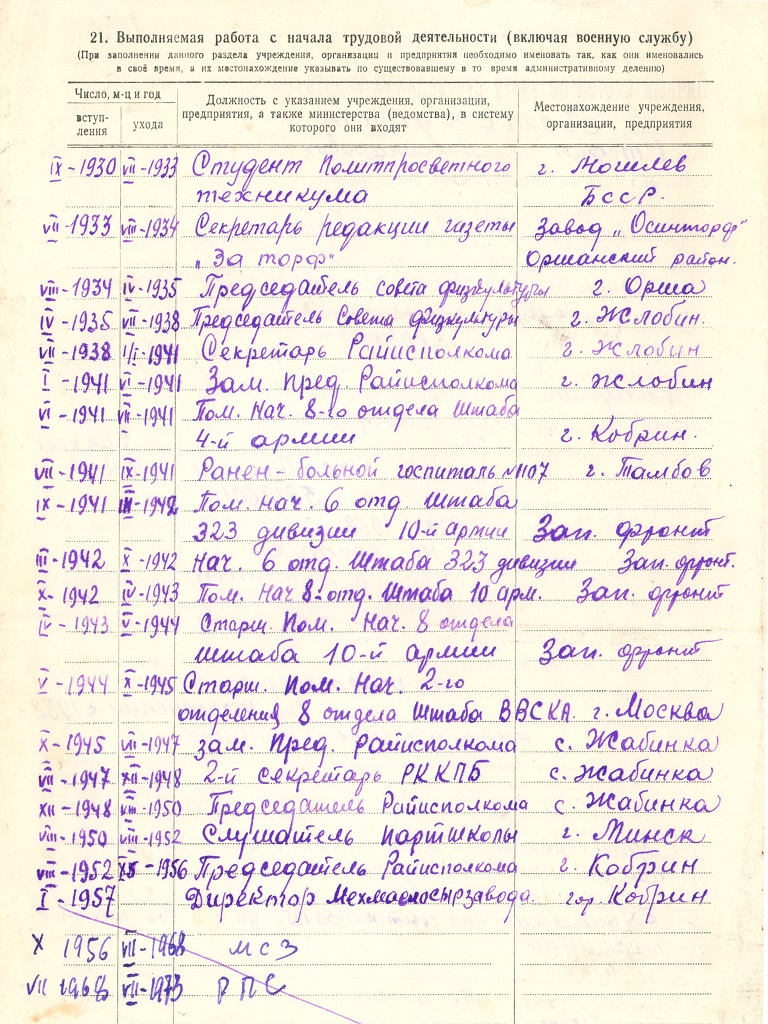 21. Выполняемая работа с начала трудовой деятельности (включая военную службу)
(При заполнении данного раздела учреждения, организации и предприятия необходимо именовать так, как они именовались
в своё время, а их местонахождение указывать по существовавшему в то время административному делению)
Число, м-ц и год
вступ-
ления
ухода
Должность с указанием учреждения, организации,
предприятия, а также министерства (ведомства), в систему
которого они входят
Местонахождение учреждения,
организации, предприятия
IX-1930 VII-1933 Студент Политпросветного г. Могилев
техникума БССР.
VII-1933 VIII-1934 Секретарь редакции газеты Завод „Осинторф"
„За торф" Оршанский район.
VIII-1934 IV-1935 Председатель совета физкультуры г. Орша
IV-1935 VII-1938 Председатель Совета физкультуры г. Жлобин.
VII-1938 I-1941 Секретарь Райисполкома г. Жлобин
I-1941 VI-1941 Зам. пред. Райисполкома г. Жлобин
VI-1941 VII-1941 Пом. Нач. 8-го отдела Штаба
4-й армии г. Кобрин.
VII-1941 IX-1941 Ранен-больной госпиталь №1107 г. Тамбов
IX-1941 III-1942 Пом. нач. 6 отд. Штаба
323 дивизии 10-й армии Зап. фронт
III-1942 X-1942 Нач. 6 отд. Штаба 323 дивизии Зап. фронт.
X-1942 IV-1943 Пом. Нач 8-отд. Штаба 10 арм. Зап. фронт
IV-1943 V-1944 Старш. Пом. Нач. 8 отдела
штаба 10-й армии Зап. фронт
V-1944 X-1945 Старш. Пом. Нач. 2-го
отделения 8 отдела Штаба ВВСКА. г. Москва
X-1945 VII-1947 Зам. Пред. Райисполкома с. Жабинка
VII-1947 XII-1948 2-й секретарь РККПБ с. Жабинка
XII-1948 VIII-1950 Председатель Райисполкома с. Жабинка
VIII-1950 VIII-1952 Слушатель партшколы г. Минск
VIII-1952 -1956 Председатель Райисполкома г. Кобрин
I-1957 Директор Мехмаслосырзавода. гор. Кобрин
X 1956 VII-1968 МСЗ
VII 1968 VII-1973 РПС